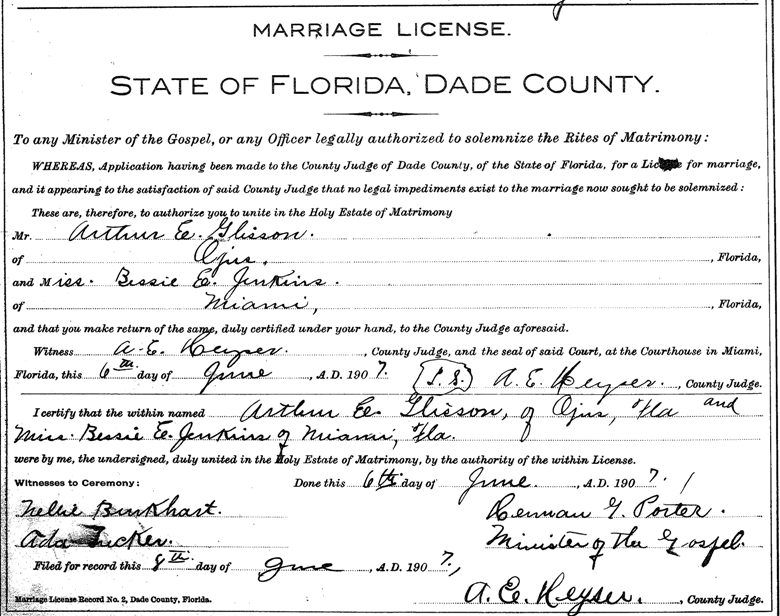 MARRIAGE LICENSE.
STATE OF FLORIDA, DADE COUNTY.
To any Minister of the Gospel, or any Officer legally authorized to solemnize the Rites of Matrimony:
WHEREAS, Application having been made to the County Judge of Dade County, of the State of Florida, for a License for marriage,
and it appearing to the satisfaction of said County Judge that no legal impediments exist to the marriage now sought to be solemnized:
These are, therefore, to authorize you to unite in the Holy Estate of Matrimony
Mr. Arthur E. Glisson.
of Ojus. , Florida,
and Miss. Bessie E. Jenkins.
of Miami, , Florida,
and that you make return of the same, duly certified under your hand, to the County Judge aforesaid.
Witness A. E. Heyser. , County Judge, and the seal of said Court, at the Courthouse in Miami,
Florida, this 6th day of June , A.D. 1907. (L.S.) A. E. Heyser. , County Judge.
I certify that the within named Arthur E. Glisson, of Ojus, Fla and
Miss. Bessie E. Jenkins of Miami, Fla.
were by me, the undersigned, duly united in the Holy Estate of Matrimony, by the authority of the within License.
Witnesses to Ceremony: Done this 6th day of June. , A.D. 1907.
Nellie Burkhart. Herman G. Porter.
Ada Tucker. Minister of the Gospel.
Filed for record this 8th day of June , A.D. 1907,
Marriage License Record No. 2, Dade County, Florida. A. E. Heyser. , County Judge.